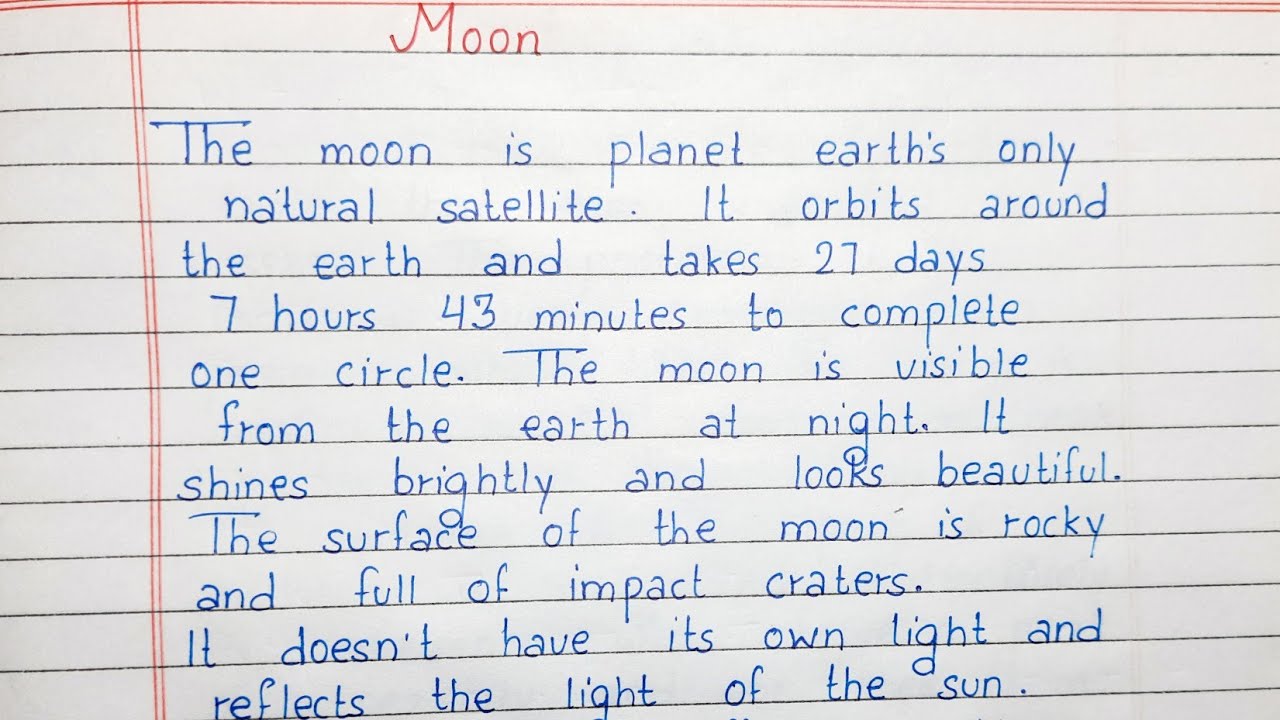 Moon
The moon is planet earth's only
natural satellite. It orbits around
the earth and takes 27 days
7 hours 43 minutes to complete
one circle. The moon is visible
from the earth at night. It
shines brightly and looks beautiful.
The surface of the moon is rocky
and full of impact craters.
It doesn't have its own light and
reflects the light of the sun.